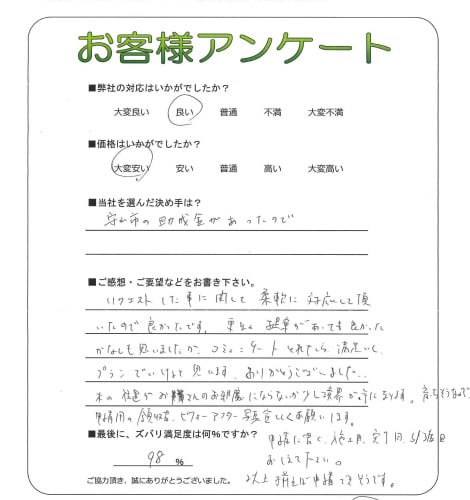 お客様アンケート
■弊社の対応はいかがでしたか?
大変良い 良い 普通 不満 大変不満
■価格はいかがでしたか?
大変安い 安い 普通 高い 大変高い
■当社を選んだ決め手は?
守山市の助成金があったので
■ご感想・ご要望などをお書き下さい。
リクエストした事に関して柔軟に対応して頂
いたので良かったです。 提案があっても良かった
かなとも思いましたが、
プラン 思います。ありがとうございました。
お隣さんのお邪魔にならないか少し 気になります。
申請用の領収書、ビフォーアフター写真 お願いします。
■最後に、ズバリ満足度は何%ですか?
98 %
申請に書く、施工日、完了日、
おしえて下さい。
以上 申請できそうです。
ご協力頂き、誠にありがとうございました。